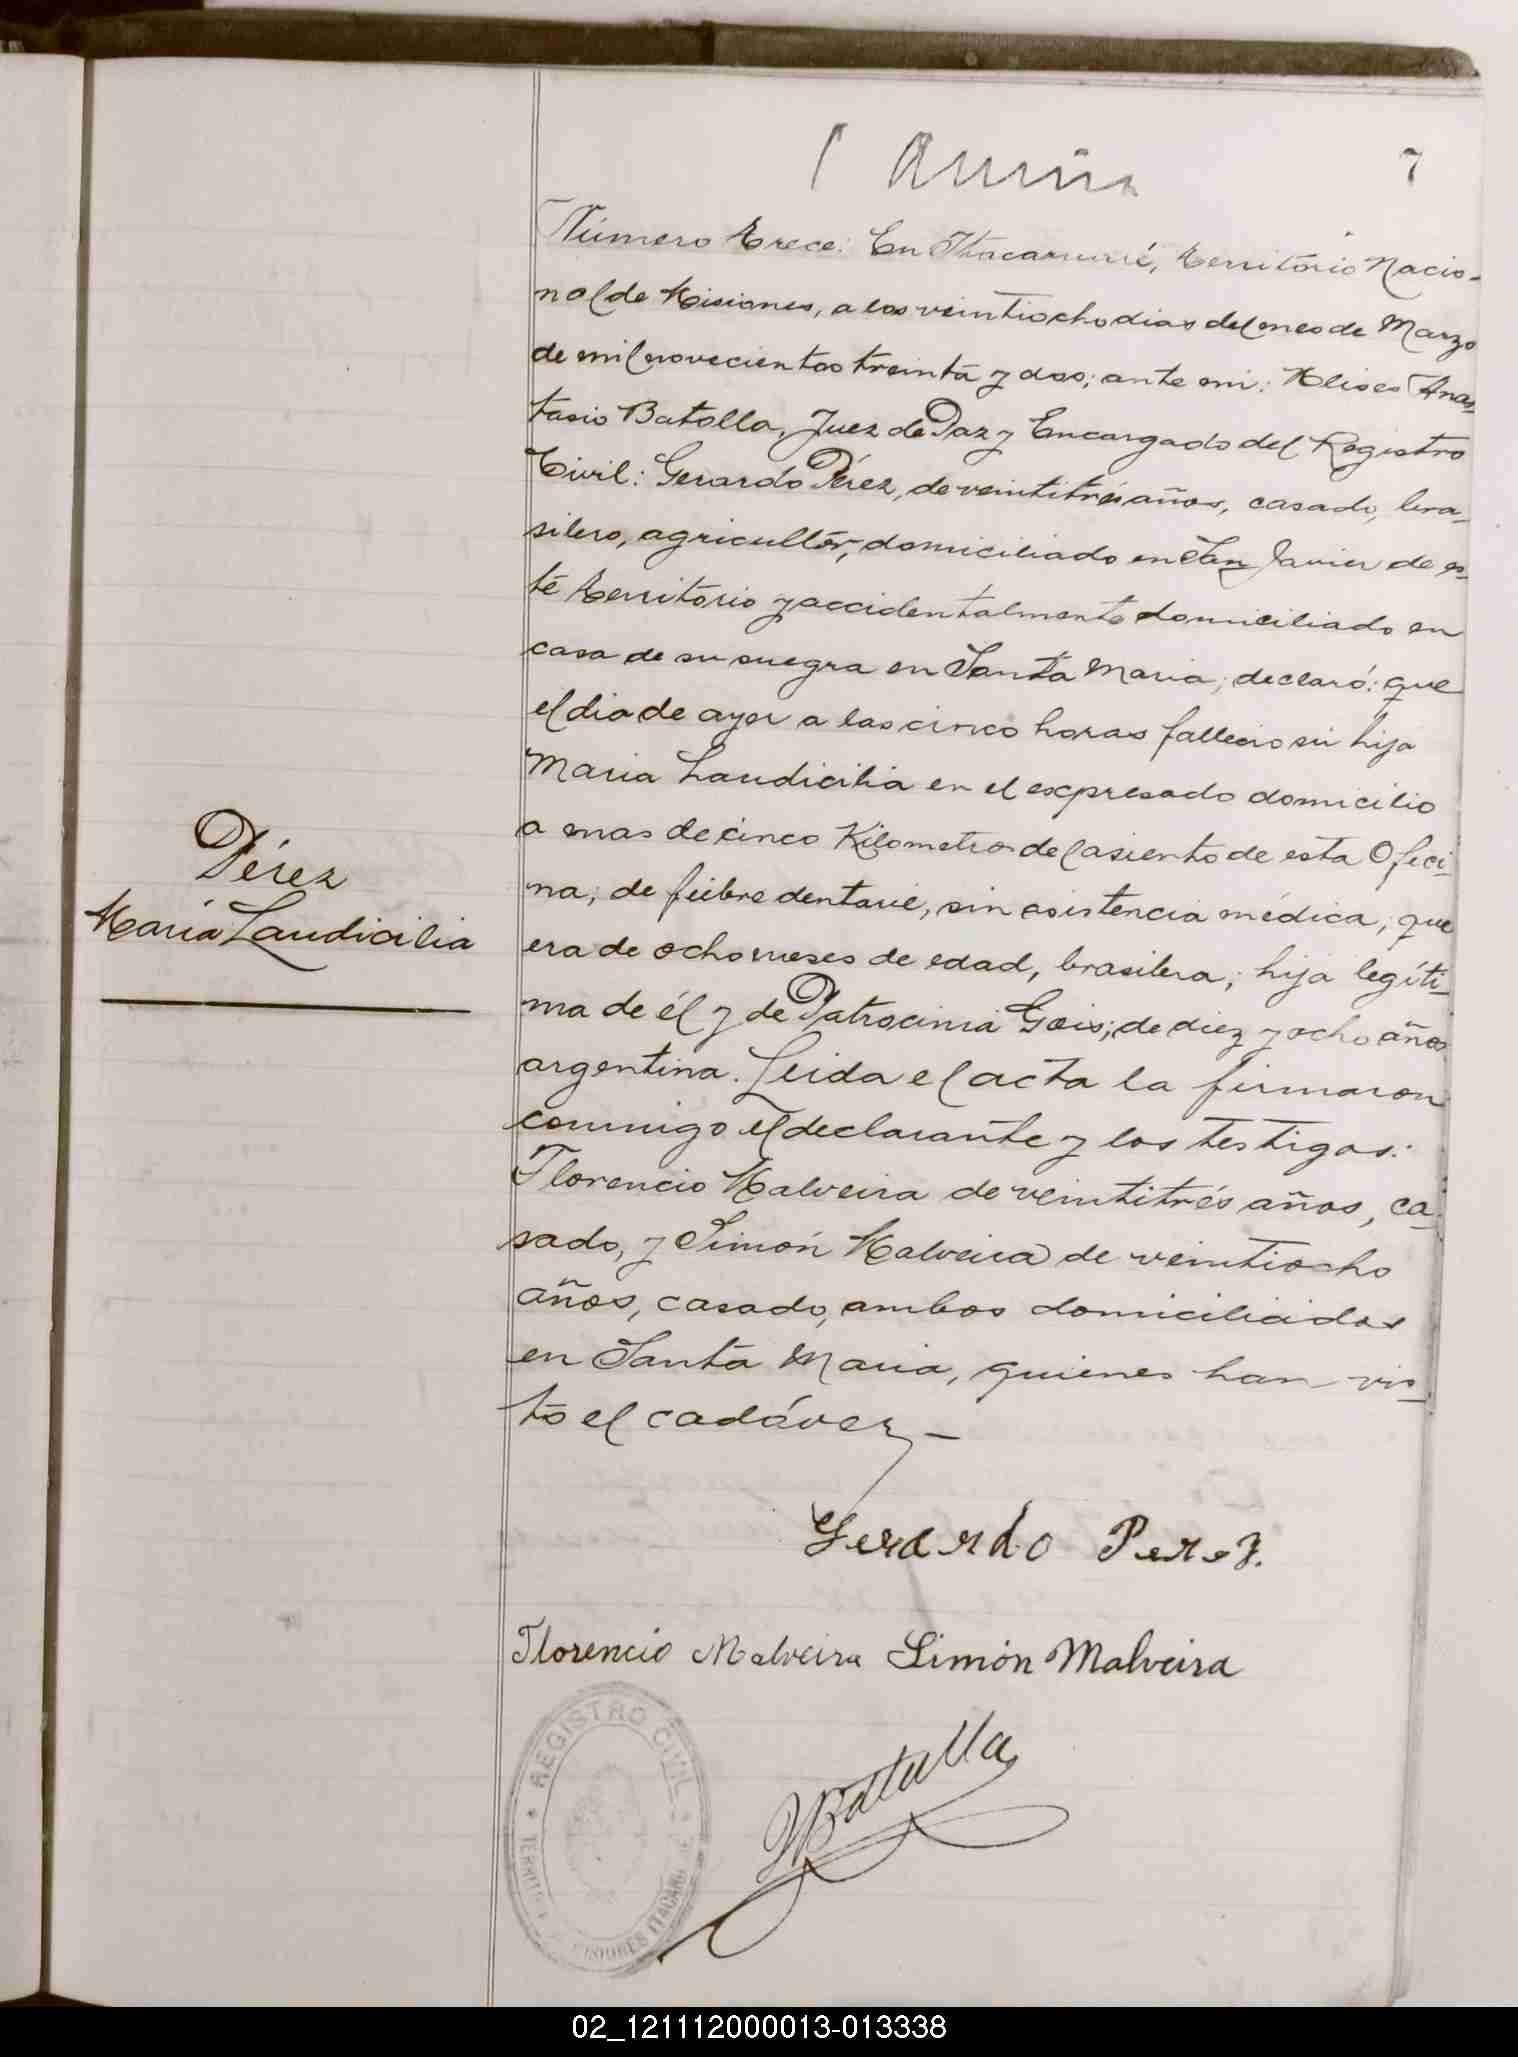 7
Número trece: En Itacaruaré, territorio Nacio-
nal de Misiones, a los veintiocho dias del mes de Marzo
de mil novecientos treinta y dos; ante mi: Ulises Anas-
tasio Batalla, Juez de Paz y Encargado del Registro
Civil: Gerardo Pérez, de veintitrés años, casado, bra-
silero, agricultor, domiciliado en San Javier de es-
te territorio y accidentalmente domiciliado en
casa de su suegra en Santa Maria; declaró: que
el dia de ayer a las cinco horas fallecio su hija
Maria Laudicilia en el expresado domicilio
a mas de cinco Kilometros del asiento de esta Ofici-
na; de fiebre dentaria, sin asistencia médica; que
era de ocho meses de edad, brasilera; hija legíti-
ma de él y de Patrocinia Gois; de diez y ocho años
argentina. Leida el acta la firmaron
conmigo el declarante y los testigos:
Florencio Malveira de veintitrés años, ca-
sado, y Simón Malveira de veintiocho
años, casado, ambos domiciliados
en Santa Maria, quienes han vis-
to el cadáver,–
Pérez
María Laudicilia
Gerardo Perez.
Florencio Malveira Simón Malveira
Batalla
REGISTRO CIVIL
MISIONES ITACARU
02_121112000013-013338